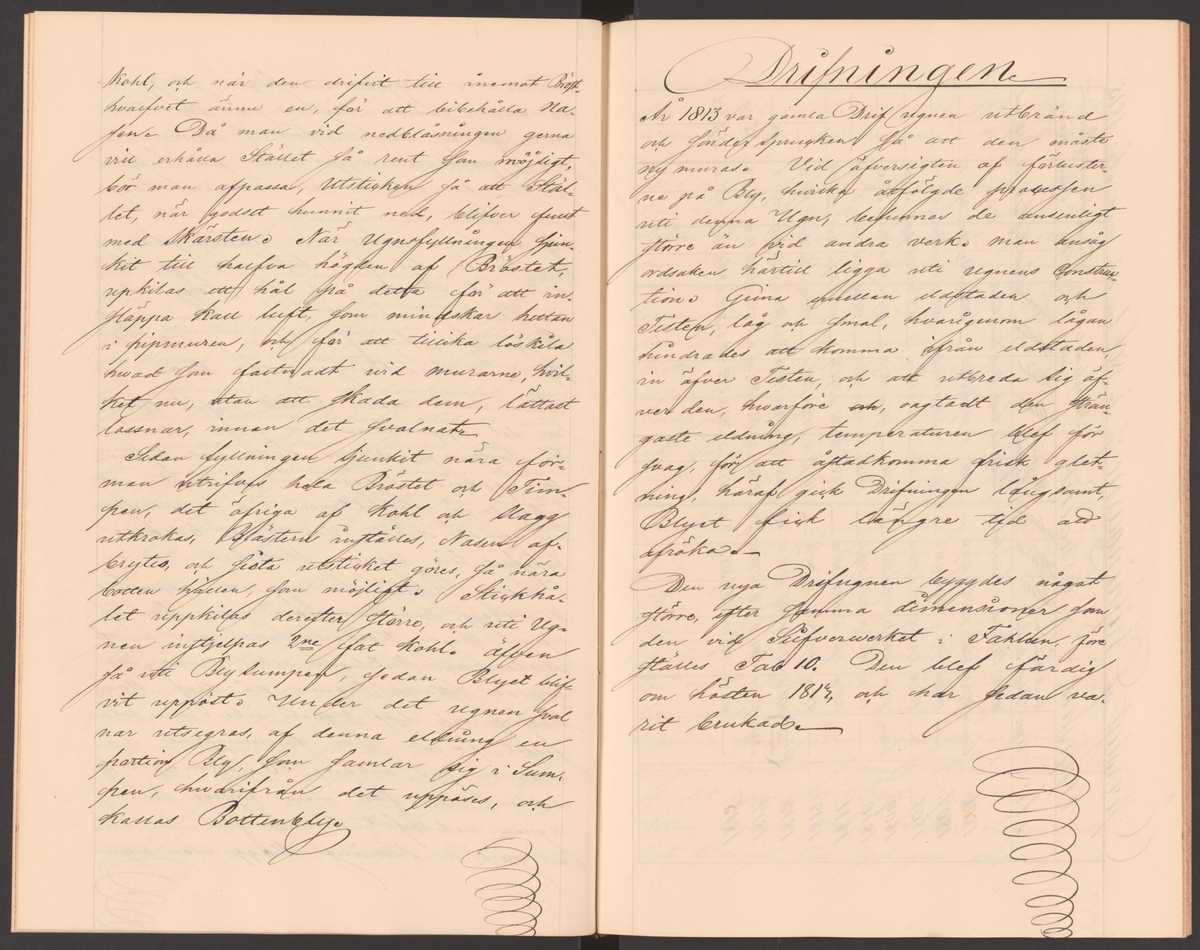 Kohl, och när den drifvit till inemot Bröst-
hvalfvet ännu en, för att bibehålla Na-
sen. Då man vid nedblåsningen gerna
vill erhålla Stället så rent som möjligt,
bör man afpassa, Utsticken så att Stäl-
let, när godset hunnit ned, blifver fullt
med Skärsten. När Ugnsfyllningen sjun-
kit till halfva högden af Bröstet,
upkilas ett hål på detta för att in-
släppa kall luft, som mindskar hettan
i pipmuren, och för att tillika löskila
hvad som fastnadt vid murarne, hvil-
ket nu, utan att skada dem, lättast
lossnar, innan det svalnat.
Sedan fyllningen sjunkit nära for-
man utrifves hela Bröstet och Tim-
pen, det öfriga af Kohl och Slagg
utkrakas, Blästern inställes, Nasen af-
brytes, och sista utsticket göres, så nära
botten hällen, som möjligt. Stickhå-
let uppkilas derefter större, och uti Ug-
nen instjelpas 2ne fat Kohl. äfven
så uti Blysumpen, sedan Blyet blif-
vit uppöst. Under det ugnen sval
nar utsegras, af denna eldning en
portion Bly, som samlar sig i Sum-
pen, hvarifrån det uppöses, och
kallas Bottenbly.
Drifningen.
År 1813 var gamla Drifugnen utbränd
och söndersprucken så att den måste
nymuras. Vid öfversigten af förluster-
ne på Bly, hvilka åtföljde processen
uti denna Ugn, befunnos de ansenligt
större än vid andra verk. man ansåg
ordsaken härtill ligga uti ugnens Construc-
tion. Grina emellan eldstaden och
Testen, låg och smal, hvarigenom lågan
hindrades att komma ifrån eldstaden,
in öfver Testen, och att utbreda sig öf-
ver den, hvarföre och, oagtadt den strän
gaste eldning, temperaturen blef för
svag, för att åstadkomma frisk glet-
ning, häraf gick Drifningen långsamt,
Blyet fick längre tid att
afröka.
Den nya Drifugnen byggdes något
större, efter samma dimensioner som
den vid Silfverwerket i Fahlun, före
ställes Tab 10. Den blef färdig
om hösten 1814, och har sedan va-
rit brukad.